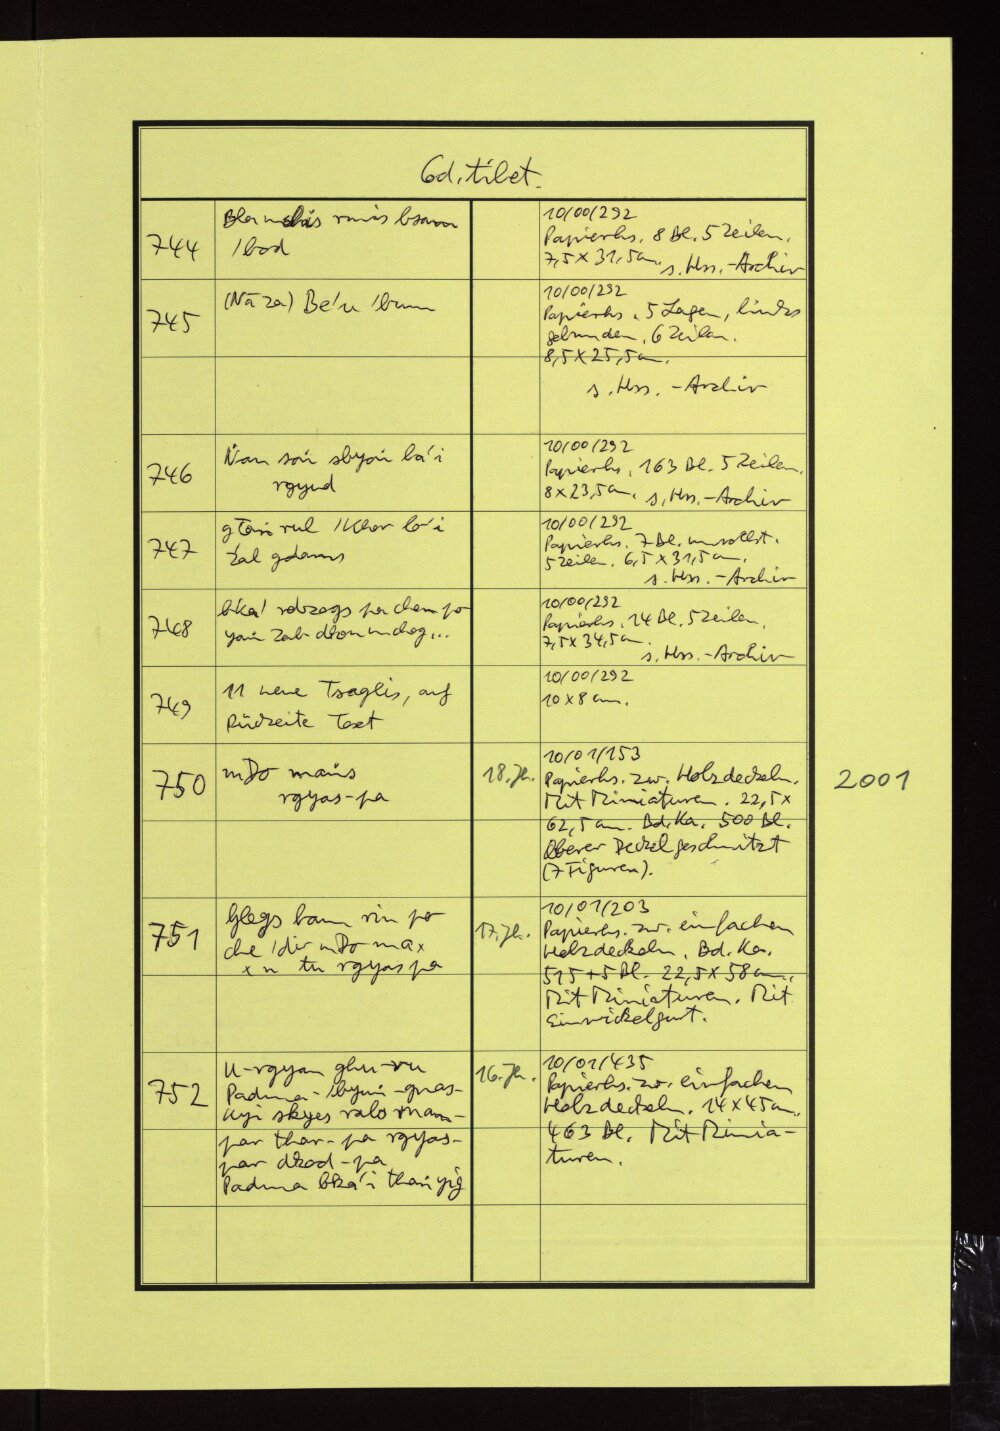 Cod. tibet.
744
Bla
bsam
'bod
10/00/292
Papierhs. 8 Bl. 5 Zeilen.
7,5 x 31,5 cm. s. Hss.-Archiv
745
(Nā za) Be'u 'bum
10/00/292
Papierhs. 5 Lagen, links
gebunden. 6 Zeilen.
8,5 x 25,5 cm.
s. Hss.-Archiv
746
Ṅan soṅ sbyoṅ ba'i
rgyud
10/00/292
Papierhs. 163 Bl. 5 Zeilen.
8 x 23,5 cm. s. Hss.-Archiv
747
'Khor lo'i
źal gdams
10/00/292
Papierhs. 7 Bl. unvollst.
5 Zeilen. 6,5 x 31,5 cm.
s. Hss.-Archiv
748
bka' rdzogs pa chen po
yaṅ zab
10/00/292
Papierhs. 14 Bl. 5 Zeilen.
7,5 x 34,5 cm.
s. Hss.-Archiv
749
11 neue Tsaglis, auf
Rückseite Text
10/00/292
10 x 8 cm.
750
mDo maṅs
rgyas-pa
18. Jh.
10/01/153
Papierhs. zw. Holzdeckeln.
Mit Miniaturen. 22,5 x
62,5 cm. Bd. Ka. 500 Bl.
Oberer Deckel geschnitzt
(7 Figuren).
2001
751
Glegs bam rin po
che 'dir mDo ma x
x n tu rgyas pa
17. Jh.
10/01/203
Papierhs. zw. einfachen
Holzdeckeln. Bd. Ka.
515 + 5 Bl. 22,5 x 58 cm.
Mit Miniaturen. Mit
Einwickelgurt.
752
U-rgyan ghu-ru
Padma-'byuṅ-gnas-
kyi skyes rabs rnam-
par thar-pa rgyas-
par bkod-pa
Padma bka'i thaṅ yig
16. Jh.
10/01/435
Papierhs. zw. einfachen
Holzdeckeln. 14 x 45 cm.
463 Bl. Mit Minia-
turen.